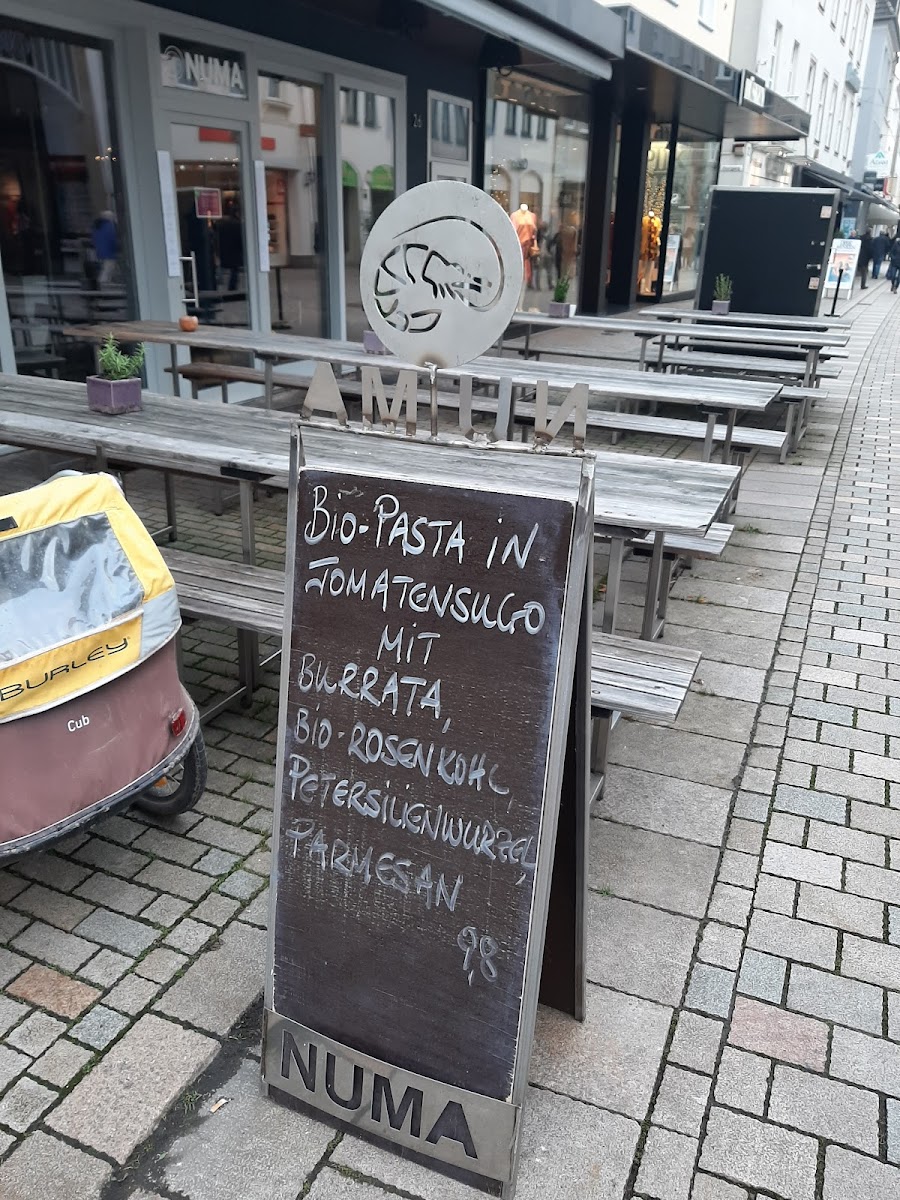 NUMA
26
NUMA
BIO-PASTA IN
TOMATENSUGO
MIT
BURRATA,
BIO-ROSENKOHL,
PETERSILIENWURZEL,
PARMESAN
9,8
NUMA
BURLEY
Cub